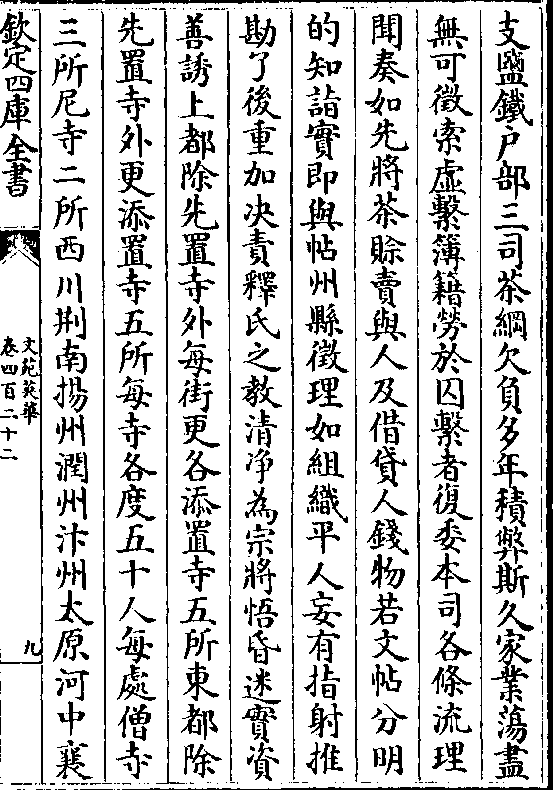 支鹽鐵戸部三司茶綱欠負多年積弊斯久家業蕩盡
無可徵索虚繫簿籍勞於囚繫者復委本司各條流理
聞奏如先將茶賒賣與人及借貸人錢物若文帖分明
的知詣實即與帖州縣徵理如組織平人妄有指射推
勘了後重加决責釋氏之教清浄為宗將悟昏迷實資
善誘上都除先置寺外每街更各添置寺五所東都除
先置寺外更添置寺五所每寺各度五十人每處僧寺
三所尼寺二所西川荆南揚州潤州汴州太原河中襄
欽定四庫全書
文苑英華
卷四百二十二
九